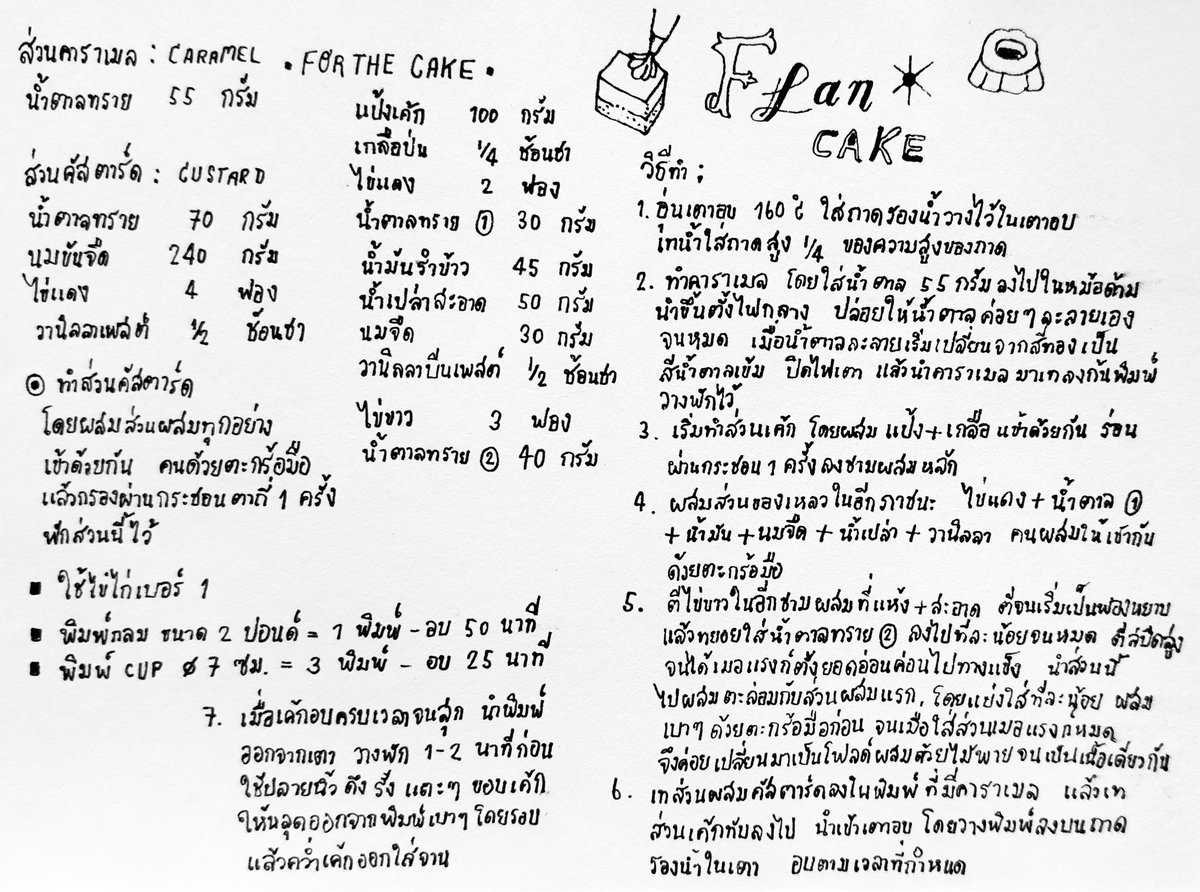 Flan
CAKE
ส่วนคาราเมล : CARAMEL
น้ำตาลทราย 55 กรัม
ส่วนคัสตาร์ด : CUSTARD
น้ำตาลทราย 70 กรัม
นมข้นจืด 240 กรัม
ไข่แดง 4 ฟอง
วานิลลาเพสต์ 1/2 ช้อนชา
◉ ทำส่วนคัสตาร์ด
โดยผสมส่วนผสมทุกอย่าง
เข้าด้วยกัน คนด้วยตะกร้อมือ
แล้วกรองผ่านกระชอนตาถี่ 1 ครั้ง
พักส่วนนี้ไว้
• FOR THE CAKE •
แป้งเค้ก 100 กรัม
เกลือป่น 1/4 ช้อนชา
ไข่แดง 2 ฟอง
น้ำตาลทราย ① 30 กรัม
น้ำมันรำข้าว 45 กรัม
น้ำเปล่าสะอาด 50 กรัม
นมจืด 30 กรัม
วานิลลาบีนเพสต์ 1/2 ช้อนชา
ไข่ขาว 3 ฟอง
น้ำตาลทราย ② 40 กรัม
▪ ใช้ไข่ไก่เบอร์ 1
▪ พิมพ์กลม ขนาด 2 ปอนด์ = 1 พิมพ์ - อบ 50 นาที
▪ พิมพ์ CUP ⌀ 7 ซม. = 3 พิมพ์ - อบ 25 นาที
วิธีทำ :
1. อุ่นเตาอบ 160 ํc ใส่ถาดรองน้ำวางไว้ในเตาอบ
เทน้ำใส่ถาดสูง 1/4 ของความสูงของถาด
2. ทำคาราเมล โดยใส่น้ำตาล 55 กรัมลงไปในหม้อด้าม
นำขึ้นตั้งไฟกลาง ปล่อยให้น้ำตาลค่อยๆละลายเอง
จนหมด เมื่อน้ำตาลละลายเริ่มเปลี่ยนจากสีทองเป็น
สีน้ำตาลเข้ม ปิดไฟเตา แล้วนำคาราเมลมาเทลงก้นพิมพ์
วางพักไว้
3. เริ่มทำส่วนเค้ก โดยผสม แป้ง + เกลือ เข้าด้วยกัน ร่อน
ผ่านกระชอน 1 ครั้งลงชามผสมหลัก
4. ผสมส่วนของเหลวในอีกภาชนะ ไข่แดง + น้ำตาล ①
+ น้ำมัน + นมจืด + น้ำเปล่า + วานิลลา คนผสมให้เข้ากัน
ด้วยตะกร้อมือ
5. ตีไข่ขาวในอีกชามผสมที่แห้ง + สะอาด ตีจนเริ่มเป็นฟองหยาบ
แล้วทยอยใส่น้ำตาลทราย ② ลงไปทีละน้อยจนหมด ตีสปีดสูง
จนได้เมอแรงก์ตั้งยอดอ่อนค่อนไปทางแข็ง นำส่วนนี้
ไปผสมตะล่อมกับส่วนผสมแรก, โดยแบ่งใส่ทีละน้อย ผสม
เบาๆ ด้วยตะกร้อมือก่อน จนเมื่อใส่ส่วนเมอแรงก์หมด
จึงค่อยเปลี่ยนมาเป็นโฟลด์ผสมด้วยไม้พายจนเป็นเนื้อเดียวกัน
6. เทส่วนผสมคัสตาร์ดลงในพิมพ์ที่มีคาราเมล แล้วเท
ส่วนเค้กทับลงไป นำเข้าเตาอบ โดยวางพิมพ์ลงบนถาด
รองน้ำในเตา อบตามเวลาที่กำหนด
7. เมื่อเค้กอบครบเวลาจนสุก นำพิมพ์
ออกจากเตา วางพัก 1-2 นาทีก่อน
ใช้ปลายนิ้ว ดึง รั้ง แตะๆ ขอบเค้ก
ให้หลุดออกจากพิมพ์เบาๆ โดยรอบ
แล้วคว่ำเค้กออกใส่จาน